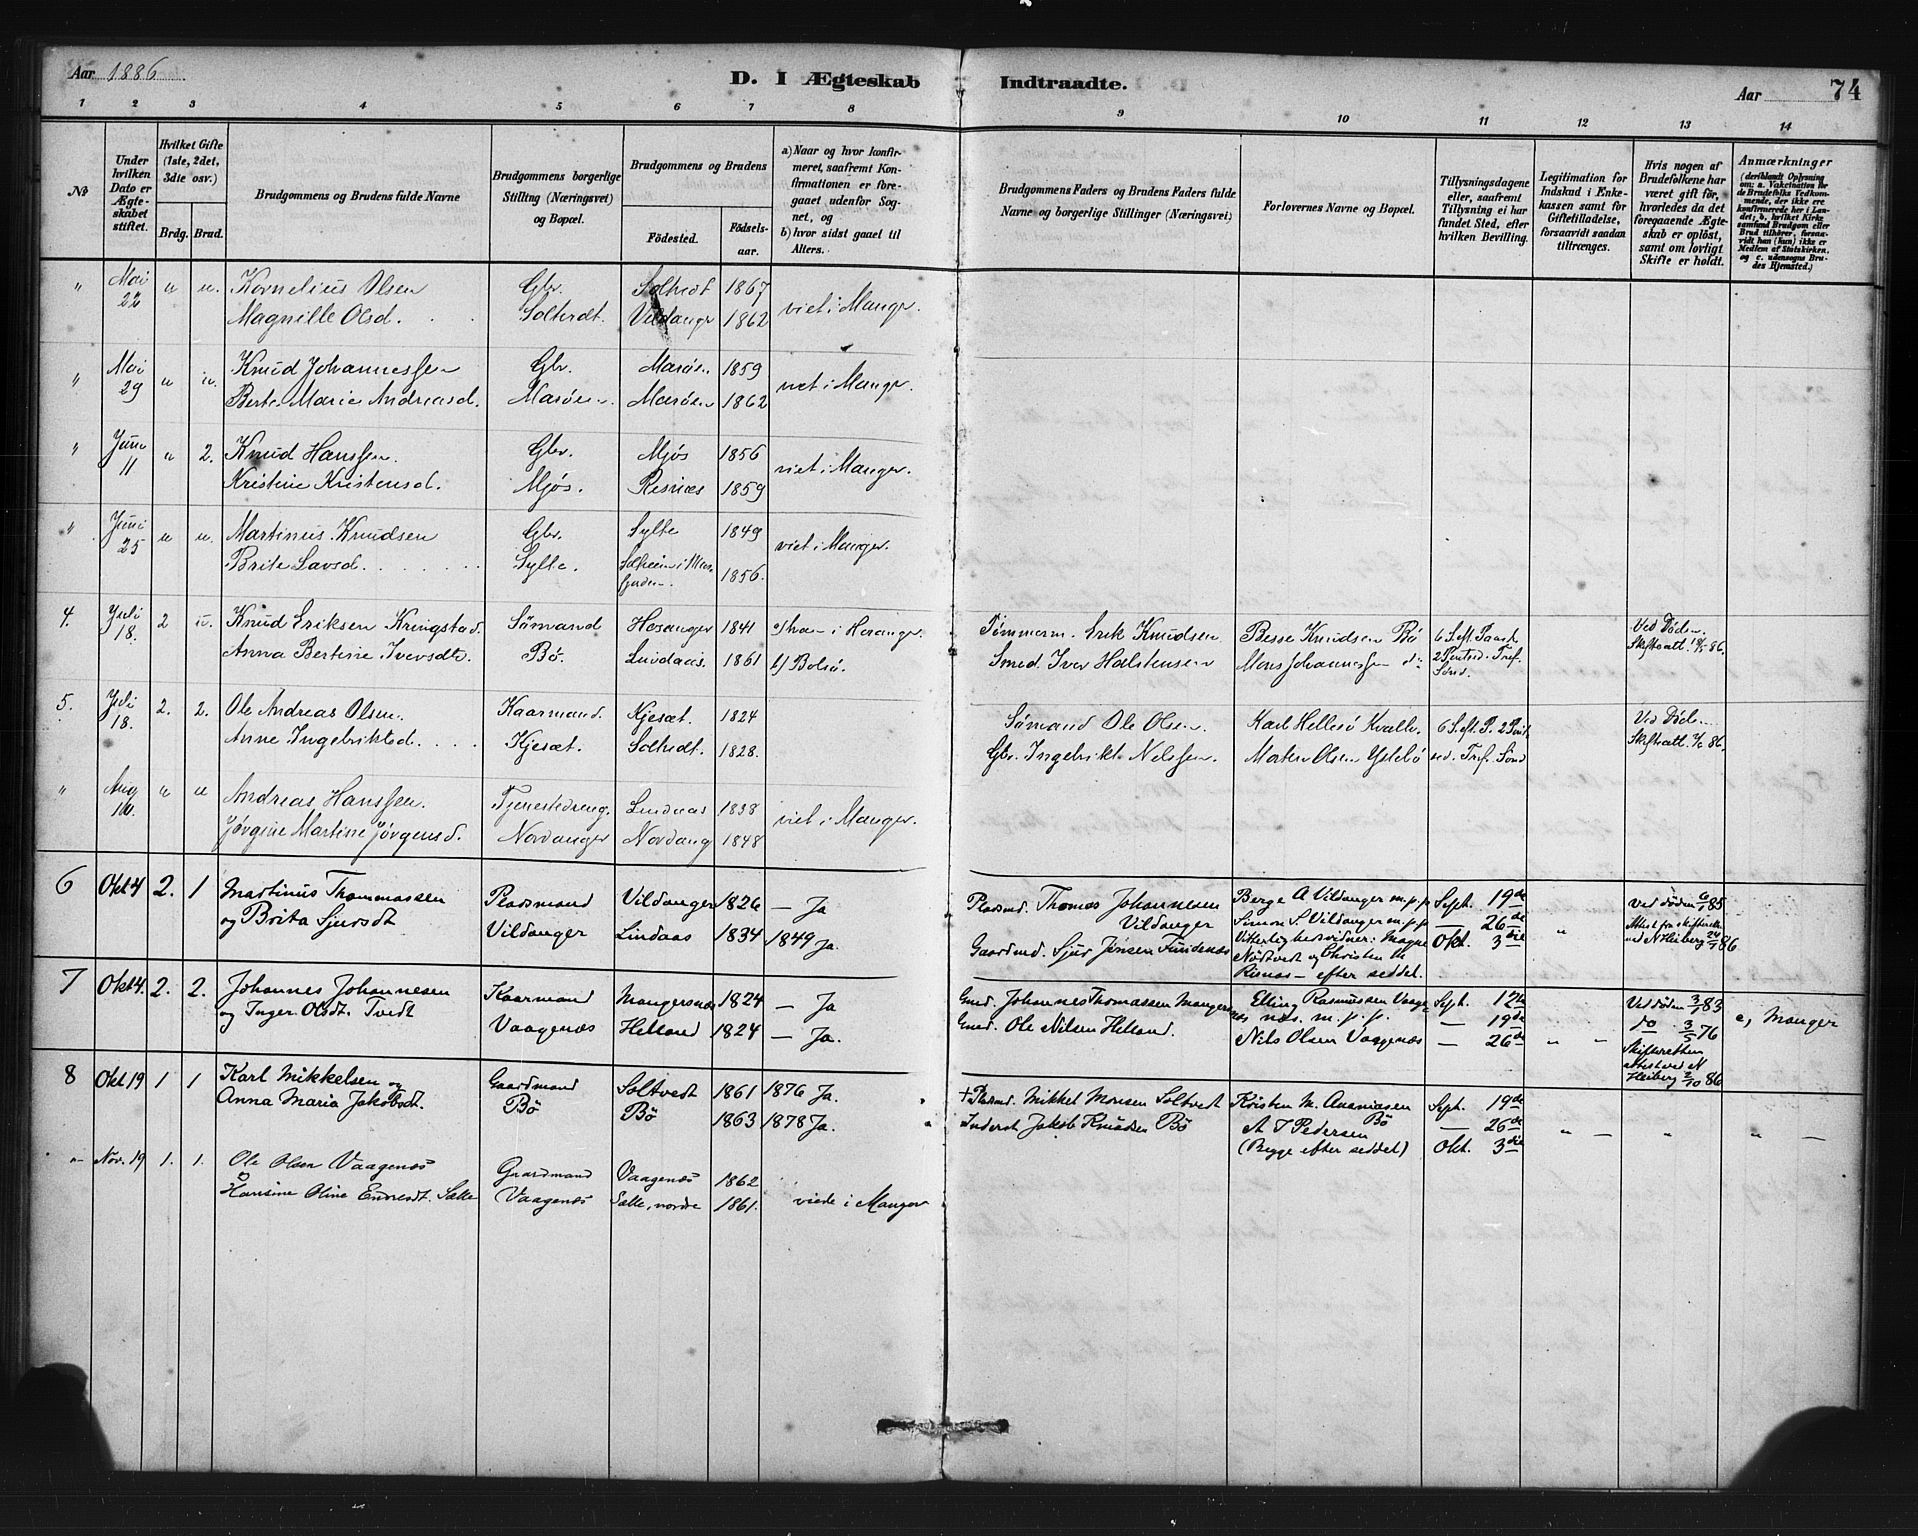 Aar 1886
D. I Ægteskab Indtraadte.
Aar 74
1 2 3 4 5 6 7 8 9 10 11 12 13 14
No
Under hvilken Dato er Ægteskabet stiftet.
Hvilket Gifte (1ste, 2det, 3die osv.)
Brdg. Brud.
Brudgommens og Brudens fulde Navne
Brudgommens borgerlige Stilling (Næringsvei) og Bopæl.
Brudgommens og Brudens
Fødested. Fødselsaar.
a) Naar og hvor konfirmeret, saafremt Konfirmationen er foregaaet udenfor Sognet, og
b) hvor sidst gaaet til Alters.
Brudgommens Faders og Brudens Faders fulde Navne og borgerlige Stillinger (Næringsvei)
Forlovernes Navne og Bopæl.
Tillysningsdagene eller, saafremt Tillysning ei har fundet Sted, efter hvilken Bevilling.
Legitimation for Indskud i Enkekassen samt for Giftetilladelse, forsaavidt saadan tiltrænges.
Hvis nogen af Brudefolkene har været gift før, hvorledes da det foregaaende Ægteskab er opløst, samt om lovligt Skifte er holdt.
Anmærkninger (deriblandt Oplysning om: a. Vakcination for de Brudefolks Vedkommende, der ikke ere konfirmerede her i Landet; b, hvilket Kirkesamfund Brudgom eller Brud tilhører, forsaavidt han (hun) ikke er Medlem af Statskirken, og c. udensogns Brudes Hjemsted.)
" Mai 22 " " Kornelius Olsen Gbr. Soltvedt 1867 viet i Manger.
Magnille Olsd. Soltvedt. Vildanger 1862
" Mai 29 " " Knud Johannessen Gbr. Marøen 1859 viet i Manger.
Berte Marie Andreasd. Marøen. Marøen 1862
" Juni 11 " 2. Knud Hanssen. Gbr. Mjøs 1856 viet i Manger.
Kristine Kristensd. Mjøs. Risnæs 1859
" Juni 25 " " Martinus Knudsen Gbr. Sylte 1849 viet i Manger.
Brite Larsd. Sylte. Solheim i Masfjorden. 1856.
4. Juli 18. 2 u. Knud Eriksen Kringstad. Sømand Hosanger 1841 i Hosanger. Tømmerm. Erik Knudsen Besse Knudsen Bø Ved Døden.
Anna Bertine Iversdtr. Bø. Lindaas. 1861 b) Bolsø. Smed. Iver Halstensen Mons Johannessen Sønd. Skifteatt. 86.
5. Juli 18. 2. 2. Ole Andreas Olsen. Kaarmand. Kjesæt. 1824 Sømand Ole Olsen Karl Hellesø Kvalh. Ved Død.
Anne Ingebriktsd. Kjesæt. Soltvedt. 1828. Gbr. Ingebrikt Nelssen. Morten Olsen Ystebø Skifteatt. 86.
" Aug 16. " " Andreas Hanssen. Tjenestedreng. Lindaas 1838 viet i Manger.
Jørgine Martine Jørgensd. Nordanger Nordang 1848
6 Okt 4 2. 1 Martinus Thommassen Pladsmand Vildanger 1826 — Ja Pladsmd. Thomas Johannesen Vildanger Berge A Vildanger m.p.p. Sept. 19de ved døden 85
og Brita Sjursdt Vildanger Lindaas 1834 1849 Ja. Gaardmd. Sjur Jensen Fundenæs Simon S. Vildanger m.p.p. — 26de " Attest fra skifteretten
Vitterlighedsvidner: Magne Nødtvedt og Christen M Risnæs — efter seddel. Okt. 3die ved N Heiberg 24/9 86
7 Okt 4. 2. 2. Johannes Johannesen Kaarmand Mangersnæs 1824 — Ja Gmd. Johannes Thomassen Mangersnæs Elling Rasmussen Vaagenæs. m.p.p. Sept. 12te Ved døden 3/1 83 c, Manger
og Inger Olsdt. Tvedt Vaagenæs Helland 1824 — Ja. Gmd. Ole Nilsen Helland. Nils Olsen Vaagenæs — 19de — 26de " — do 3/5 76
Skifteretten attest ved N Heiberg 2/10 86
8 Okt 19 1 1 Karl Mikkelsen og Gaardmand Soltvedt 1861 1876 Ja. + Pladsmd. Mikkel Monsen Soltvedt Kristen M. Ananiasen Bø Sept. 19de
Anna Maria Jakobsdt. Bø Bø 1863 1878 Ja. Inderst Jakob Knudsen Bø A I Pedersen — 26de " — " " —
(Begge efter seddel) Okt. 3die
"— Nov. 19 1. 1. Ole Olsen Vaagenæs Gaardmand Vaagenæs 1862
Hansine Oline Endresdt. Sætre Vaagenæs Sætre, nordre 1861. viede i Manger